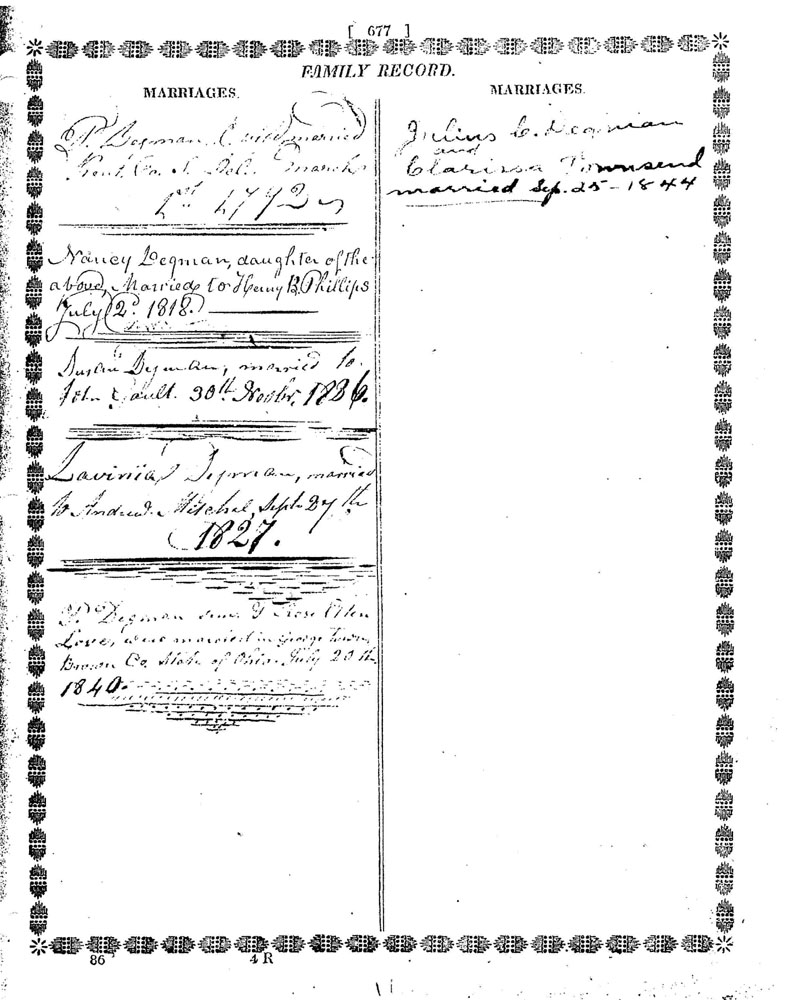 [ 677 ]
FAMILY RECORD.
MARRIAGES.
P. Degman & wife married
Kent Co. S. Del. March
1st 1792
Nancy Degman, daughter of the
above, Married to Henry B. Phillips
July 2d. 1818.
Susan Degman, married to
John Gault. 30th Novbr, 1826.
Lavinia Degman, married
to Andrew Mitchel, Sept. 27th
1827.
P. Degman & Rose Ellen
Love, were married in George Town,
Brown Co. State of Ohio July 20th
1840.
MARRIAGES.
Julius C. Degman
and
Clarissa Townsend
married Sep. 25 - 1844
86
4 R